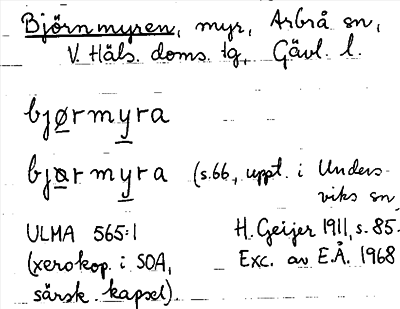 Björnmyren, myr, Arbrå sn,
V. Häls. doms. tg, Gävl. l.
bjørmyra
bjɑrmyra (s. 66, uppt. i Unders-
viks sn
ULMA 565:1 H. Geijer 1911, s. 85.
(xerokop. i SOA, Exc. av E.Å. 1968
särsk. kapsel).